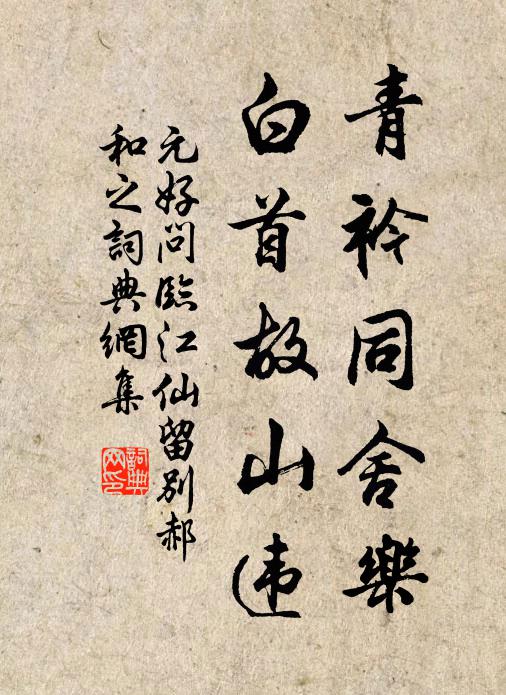 青衿同舍樂
白首故山违
元好问臨江仙留别郝
和之詞典網集
詞典
网印